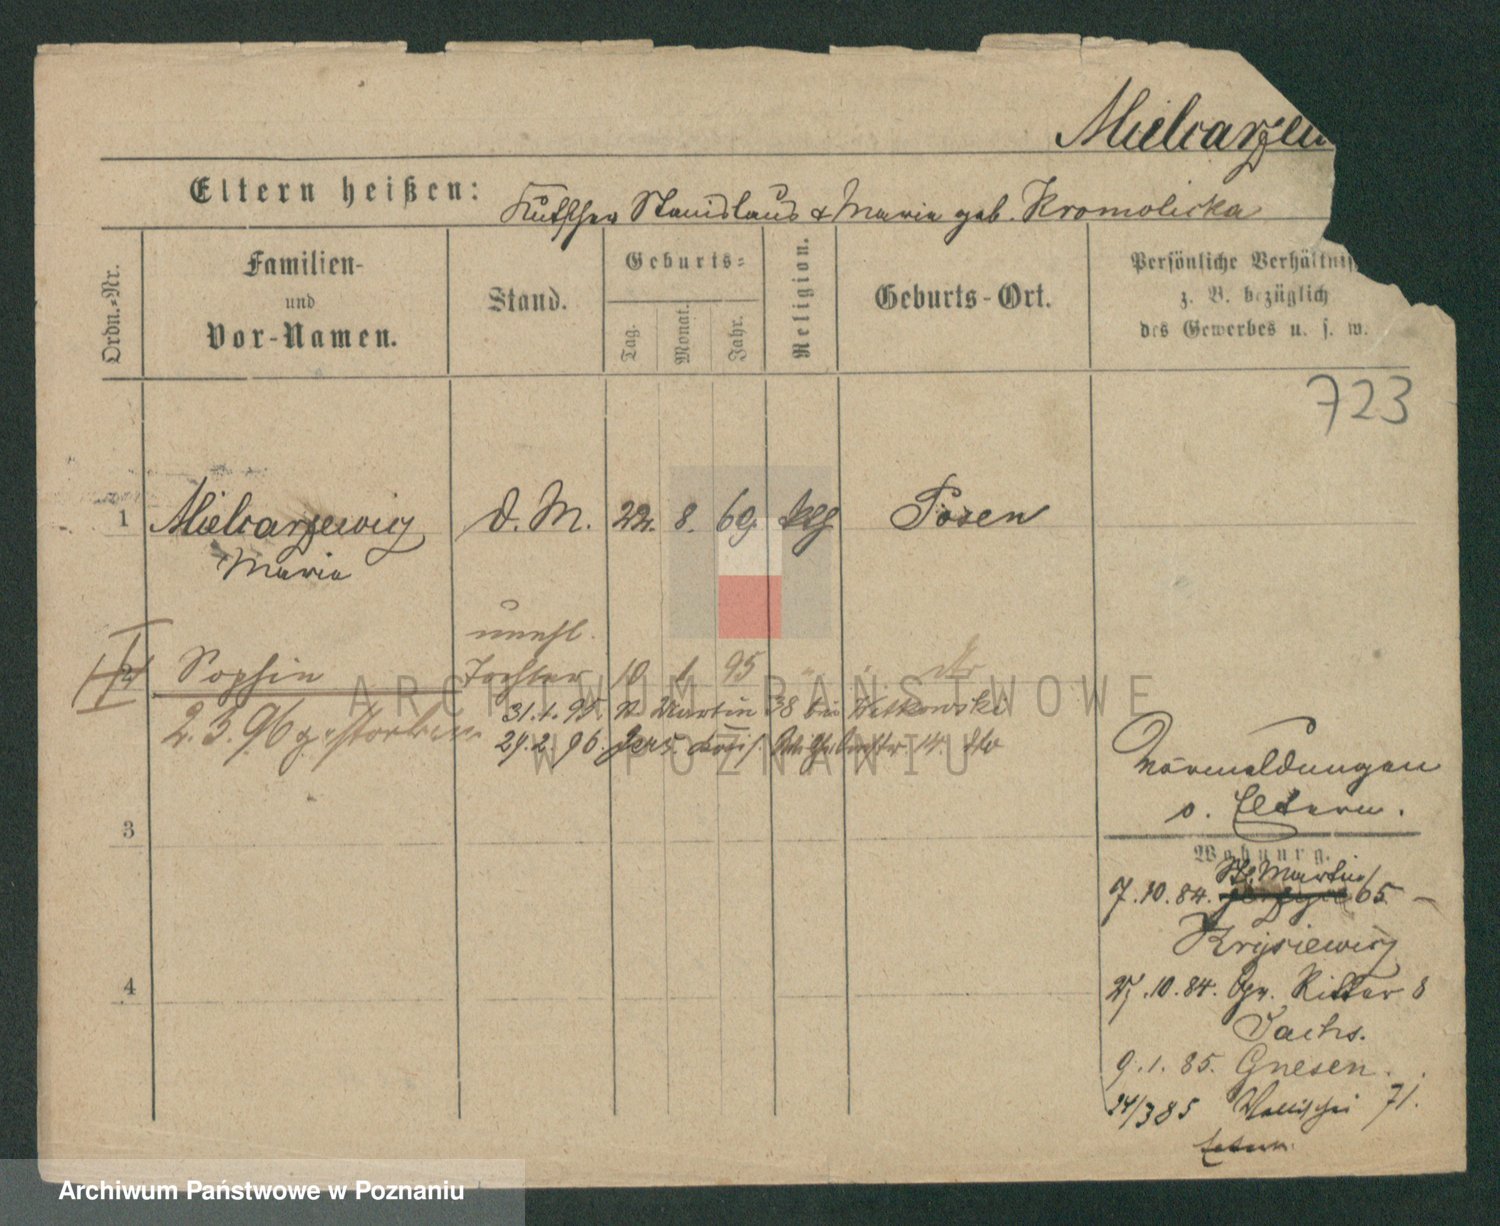 Mielcarzew
Eltern heißen: Kutscher Stanislaus & Maria geb. Kromolicka
Ordn.-Nr.
Familien-
und
Vor-Namen.
Stand.
Geburts-
Tag.
Monat.
Jahr.
Religion.
Geburts-Ort.
Persönliche Verhältniss
z. B. bezüglich
des Gewerbes u. s. w.
723
1 Mielcarzewicz d. M. 22. 8. 69. Posen
Maria
unehl.
2 Sophie Tochter 10 1 95 " dto
31.1.95. St. Martin 38 bei Witkowski
2.3.96 gestorben
29.2.96. 14. dto
Vormeldungen
s. Eltern.
3
Wohnung.
St. Martin
7.10.84. 65 –
Krysiewicz
4
27.10.84. Gr. Ritter 8
Sachs.
9.1.85. Gnesen.
24/3 85 Wallischei 71.
Eltern
ARCHIWUM PAŃSTWOWE
W POZNANIU
Archiwum Państwowe w Poznaniu